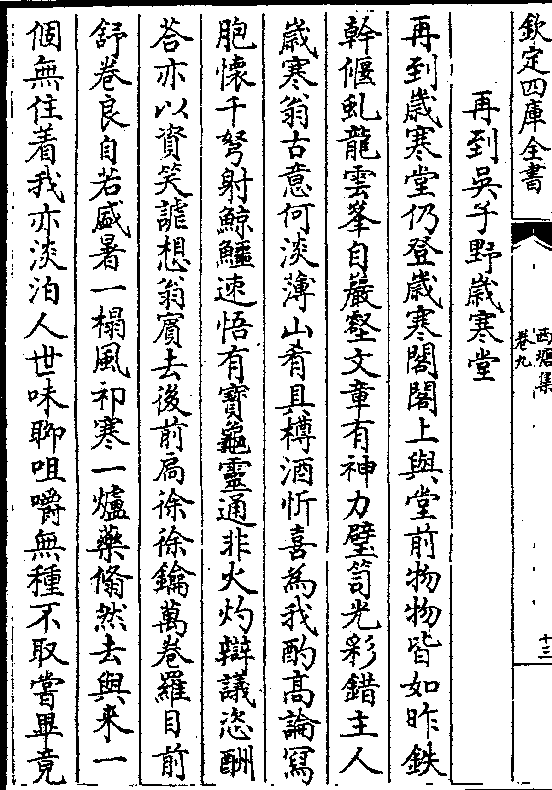 欽定四庫全書
西塘集
卷九
十三
再到吳子野歲寒堂
再到歲寒堂仍登歲寒閣閣上與堂前物物皆如昨鉄
幹偃虬龍雲峯自巖壑文章有神力璧笥光彩錯主人
歲寒翁古意何淡薄山肴具樽酒忻喜為我酌高論冩
胞懷千弩射鯨鱷速悟有寶龜靈通非火灼辯議恣酬
荅亦以資笑謔想翁賓去後前扃徐徐鑰萬卷羅目前
舒卷良自若盛暑一榻風祁寒一爐藥翛然去與来一
個無住着我亦淡泊人世味聊咀嚼無種不取嘗畢竟